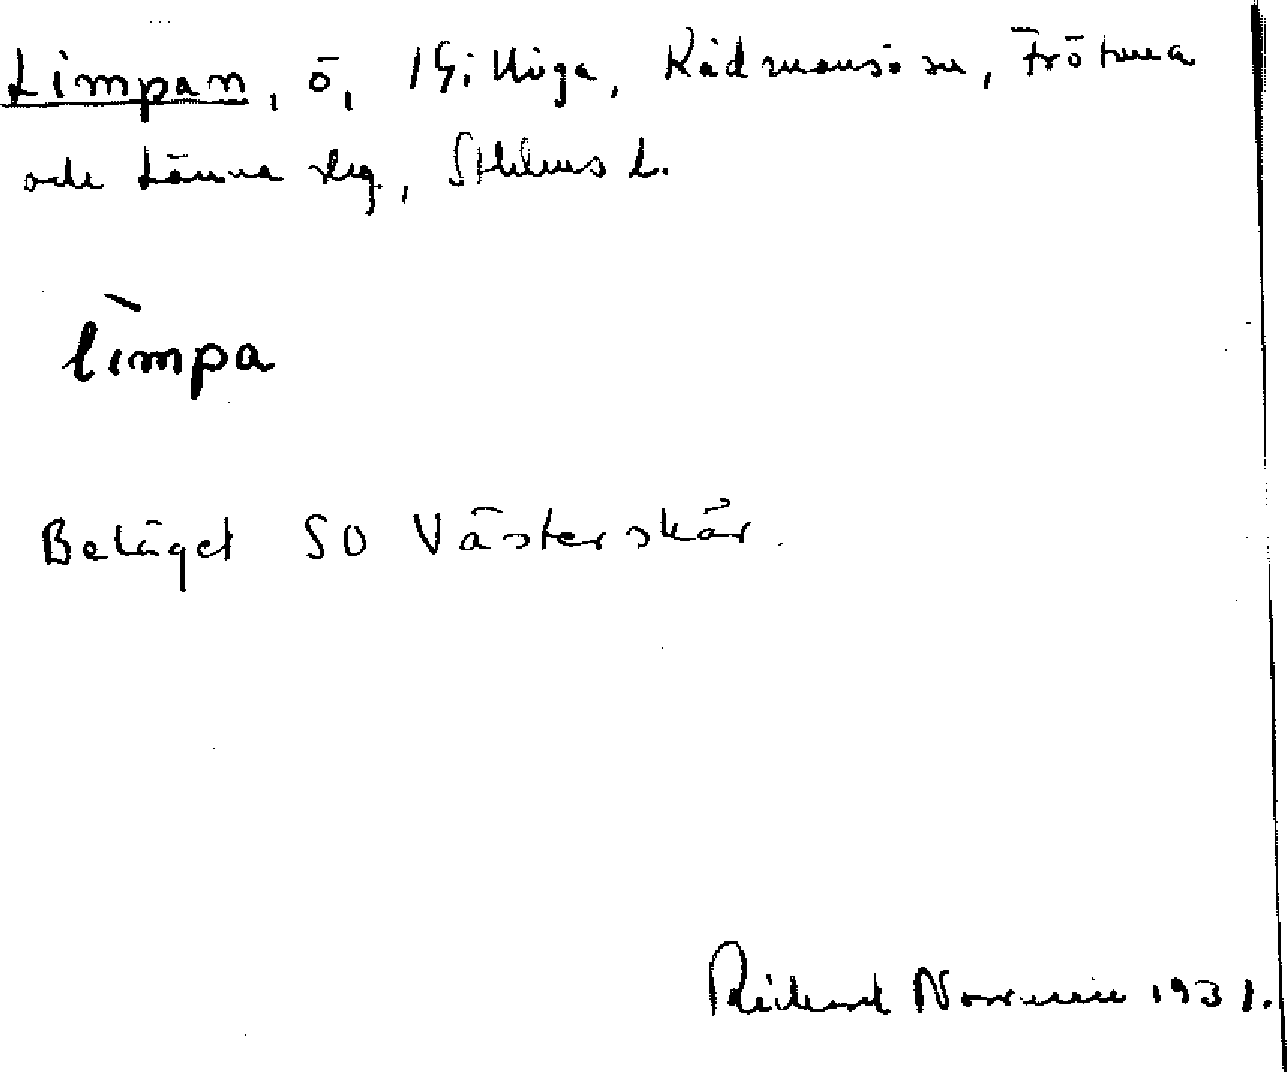 Limpan, ö, i Gillöga, Rådmansö sn, Frötuna
och Länna skg, Sthlms L.
lìmpa
Beläget SO Västerskär.
Rickard Norenius 1931.